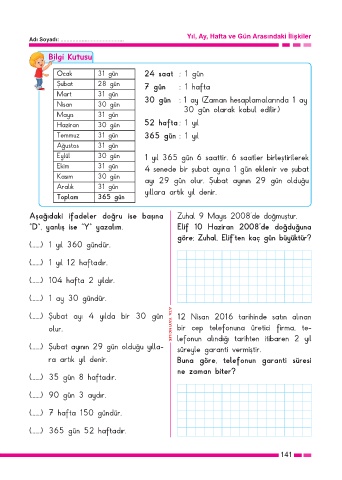 Adı Soyadı: ................................
Yıl, Ay, Hafta ve Gün Arasındaki İlişkiler
Bilgi Kutusu
Ocak 31 gün
Şubat 28 gün
Mart 31 gün
Nisan 30 gün
Mayıs 31 gün
Haziran 30 gün
Temmuz 31 gün
Ağustos 31 gün
Eylül 30 gün
Ekim 31 gün
Kasım 30 gün
Aralık 31 gün
Toplam 365 gün
24 saat : 1 gün
7 gün : 1 hafta
30 gün : 1 ay (Zaman hesaplamalarında 1 ay
30 gün olarak kabul edilir.)
52 hafta : 1 yıl
365 gün : 1 yıl
1 yıl 365 gün 6 saattir. 6 saatler birleştirilerek
4 senede bir şubat ayına 1 gün eklenir ve şubat
ayı 29 gün olur. Şubat ayının 29 gün olduğu
yıllara artık yıl denir.
Aşağıdaki ifadeler doğru ise başına
"D", yanlış ise "Y" yazalım.
(.....) 1 yıl 360 gündür.
(.....) 1 yıl 12 haftadır.
(.....) 104 hafta 2 yıldır.
(.....) 1 ay 30 gündür.
(.....) Şubat ayı 4 yılda bir 30 gün
olur.
(.....) Şubat ayının 29 gün olduğu yılla-
ra artık yıl denir.
(.....) 35 gün 8 haftadır.
(.....) 90 gün 3 aydır.
(.....) 7 hafta 150 gündür.
(.....) 365 gün 52 haftadır.
Zuhal 9 Mayıs 2008'de doğmuştur.
Elif 10 Haziran 2008'de doğduğuna
göre; Zuhal, Elif'ten kaç gün büyüktür?
12 Nisan 2016 tarihinde satın alınan
bir cep telefonuna üretici firma, te-
lefonun alındığı tarihten itibaren 2 yıl
süreyle garanti vermiştir.
Buna göre, telefonun garanti süresi
ne zaman biter?
141